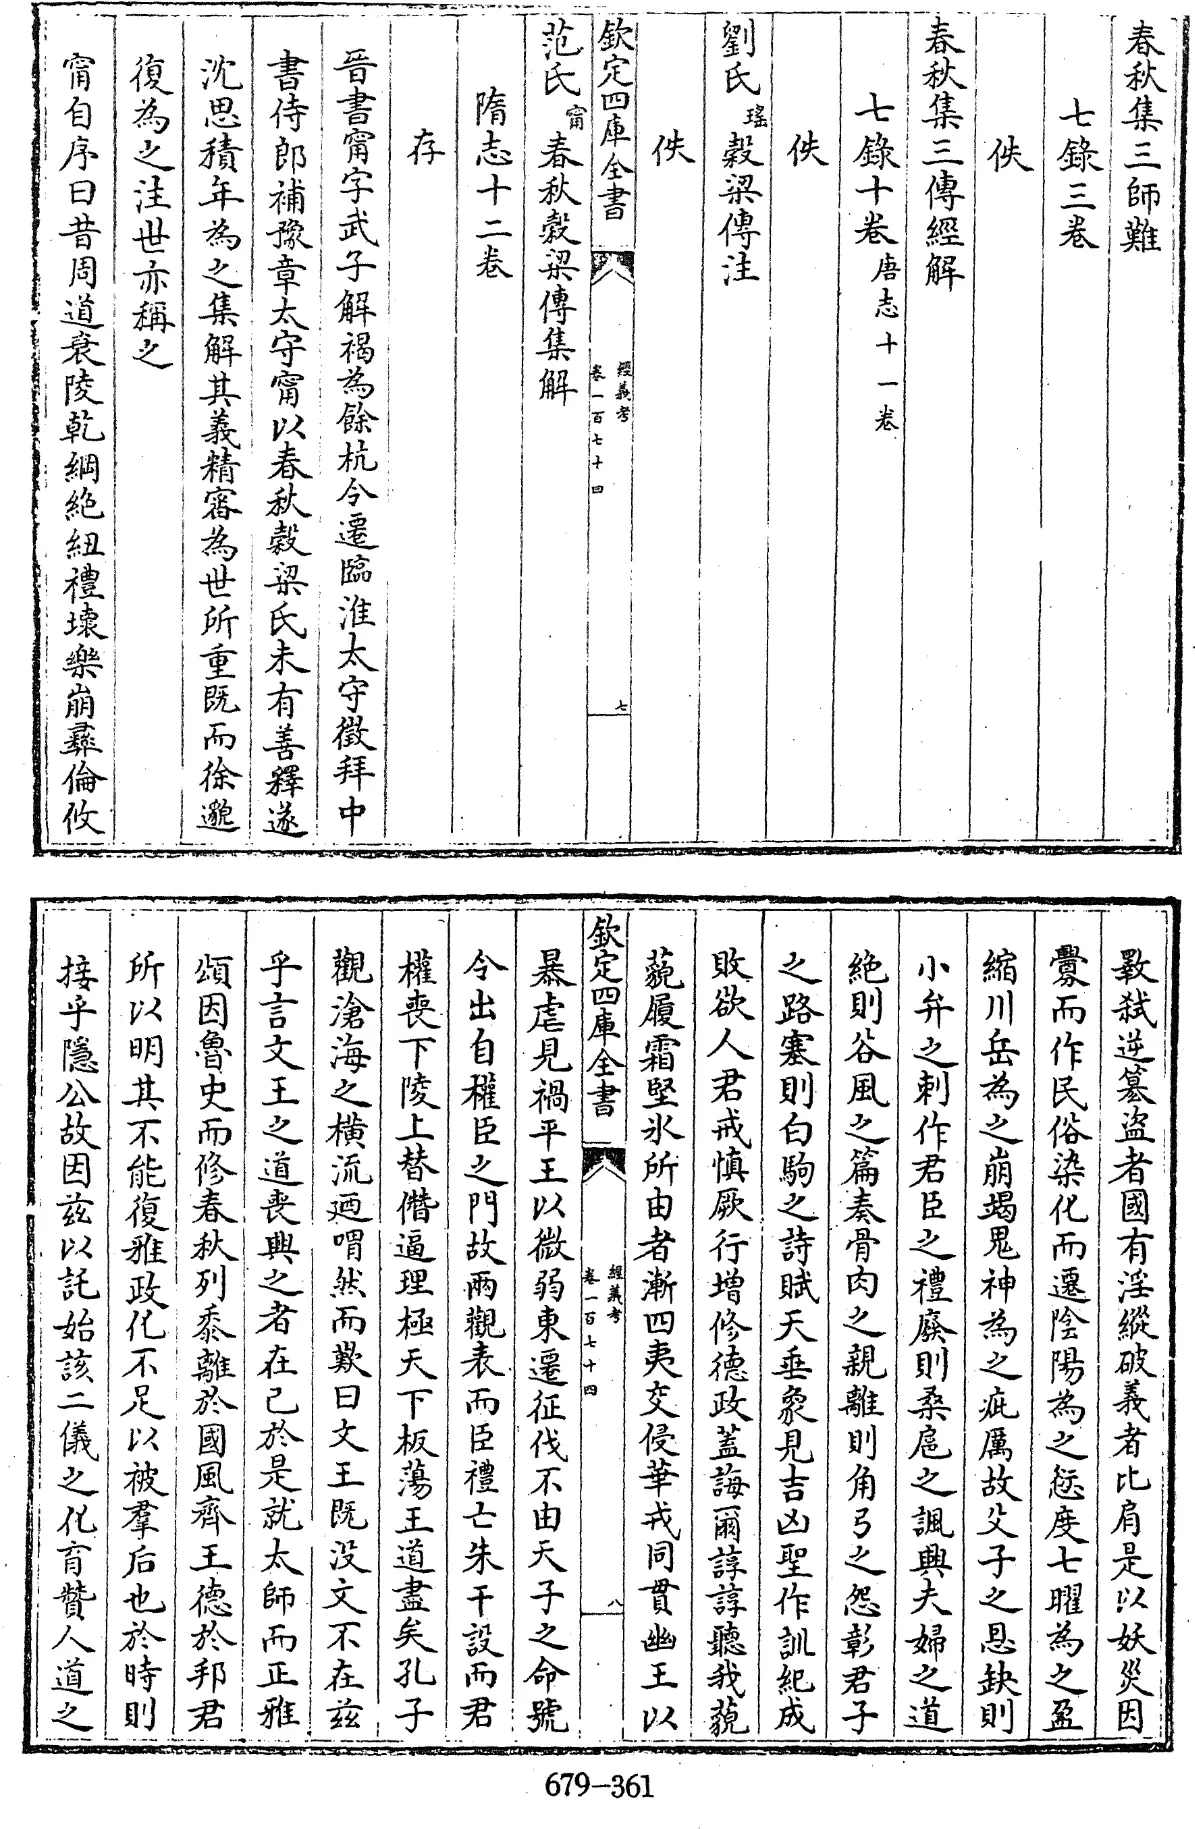 春秋集三師難
七錄三卷
佚
春秋集三傳經解
七錄十卷唐志十一卷
佚
劉氏瑤穀梁傳注
佚
欽定四庫全書
經義考
卷一百七十四
七
范氏甯春秋穀梁傳集解
隋志十二卷
存
晉書甯字武子解褐為餘杭令遷臨淮太守徵拜中
書侍郎補豫章太守甯以春秋穀梁氏未有善釋遂
沈思積年為之集解其義精審為世所重既而徐邈
復為之注世亦稱之
甯自序曰昔周道衰陵乾綱絶紐禮壞樂崩彞倫攸
斁弑逆簒盜者國有淫縱破義者比肩是以妖災因
釁而作民俗染化而遷陰陽為之愆度七曜為之盈
縮川岳為之崩竭鬼神為之疵厲故父子之恩缺則
小弁之刺作君臣之禮廢則桑扈之諷興夫婦之道
絶則谷風之篇奏骨肉之親離則角弓之怨彰君子
之路塞則白駒之詩賦天垂象見吉凶聖作訓紀成
敗欲人君戒慎厥行增修德政蓋誨爾諄諄聽我藐
藐履霜堅氷所由者漸四夷交侵華戎同貫幽王以
欽定四庫全書
經義考
卷一百七十四
八
暴虐見禍平王以微弱東遷征伐不由天子之命號
令出自權臣之門故兩觀表而臣禮亡朱干設而君
權喪下陵上替僭逼理極天下板蕩王道盡矣孔子
觀滄海之橫流廼喟然而歎曰文王既没文不在兹
乎言文王之道喪興之者在己於是就太師而正雅
頌因魯史而修春秋列黍離於國風齊王德於邦君
所以明其不能復雅政化不足以被羣后也於時則
接乎隱公故因兹以託始該二儀之化育贊人道之
679-361